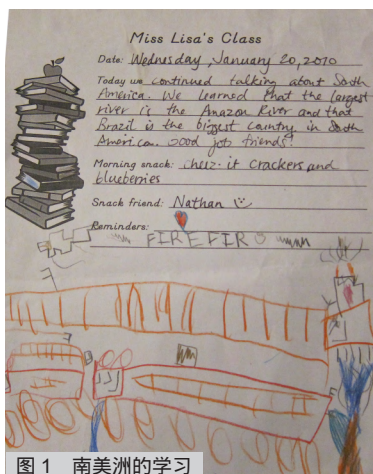 Miss Lisa's Class
Date: Wednesday, January 20, 2010
Today we continued talking about South
America. We learned that the largest
river is the Amazon River and that
Brazil is the biggest country in South
American. Good job friends!
Morning snack: cheez-it crackers and
blueberries
Snack friend: Nathan
Reminders:
FIREFIRO
图 1 南美洲的学习